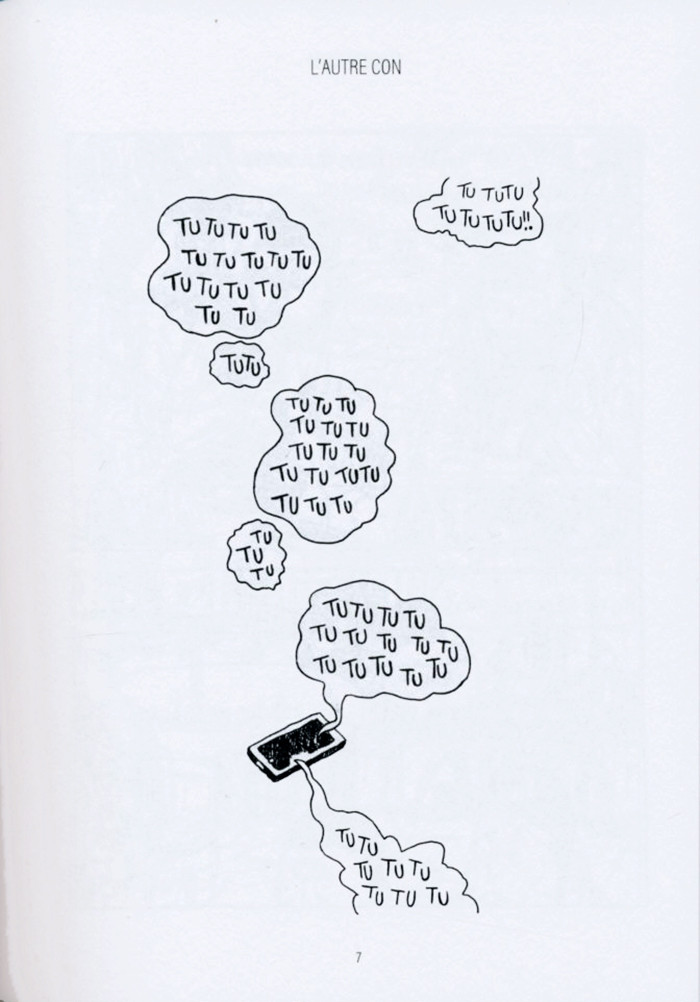 L'AUTRE CON
TU TUTU
TU TU TUTU!!
TU TU TU TU
TU TU TU TU TU
TU TU TU TU
TU TU
TUTU
TU TU TU
TU TU TU
TU TU TU
TU TU TUTU
TU TU TU
TU
TU
TU
TU TU TU TU
TU TU TU TU TU
TU TU TU TU TU
TU TU
TU TU TU
TU TU TU
7